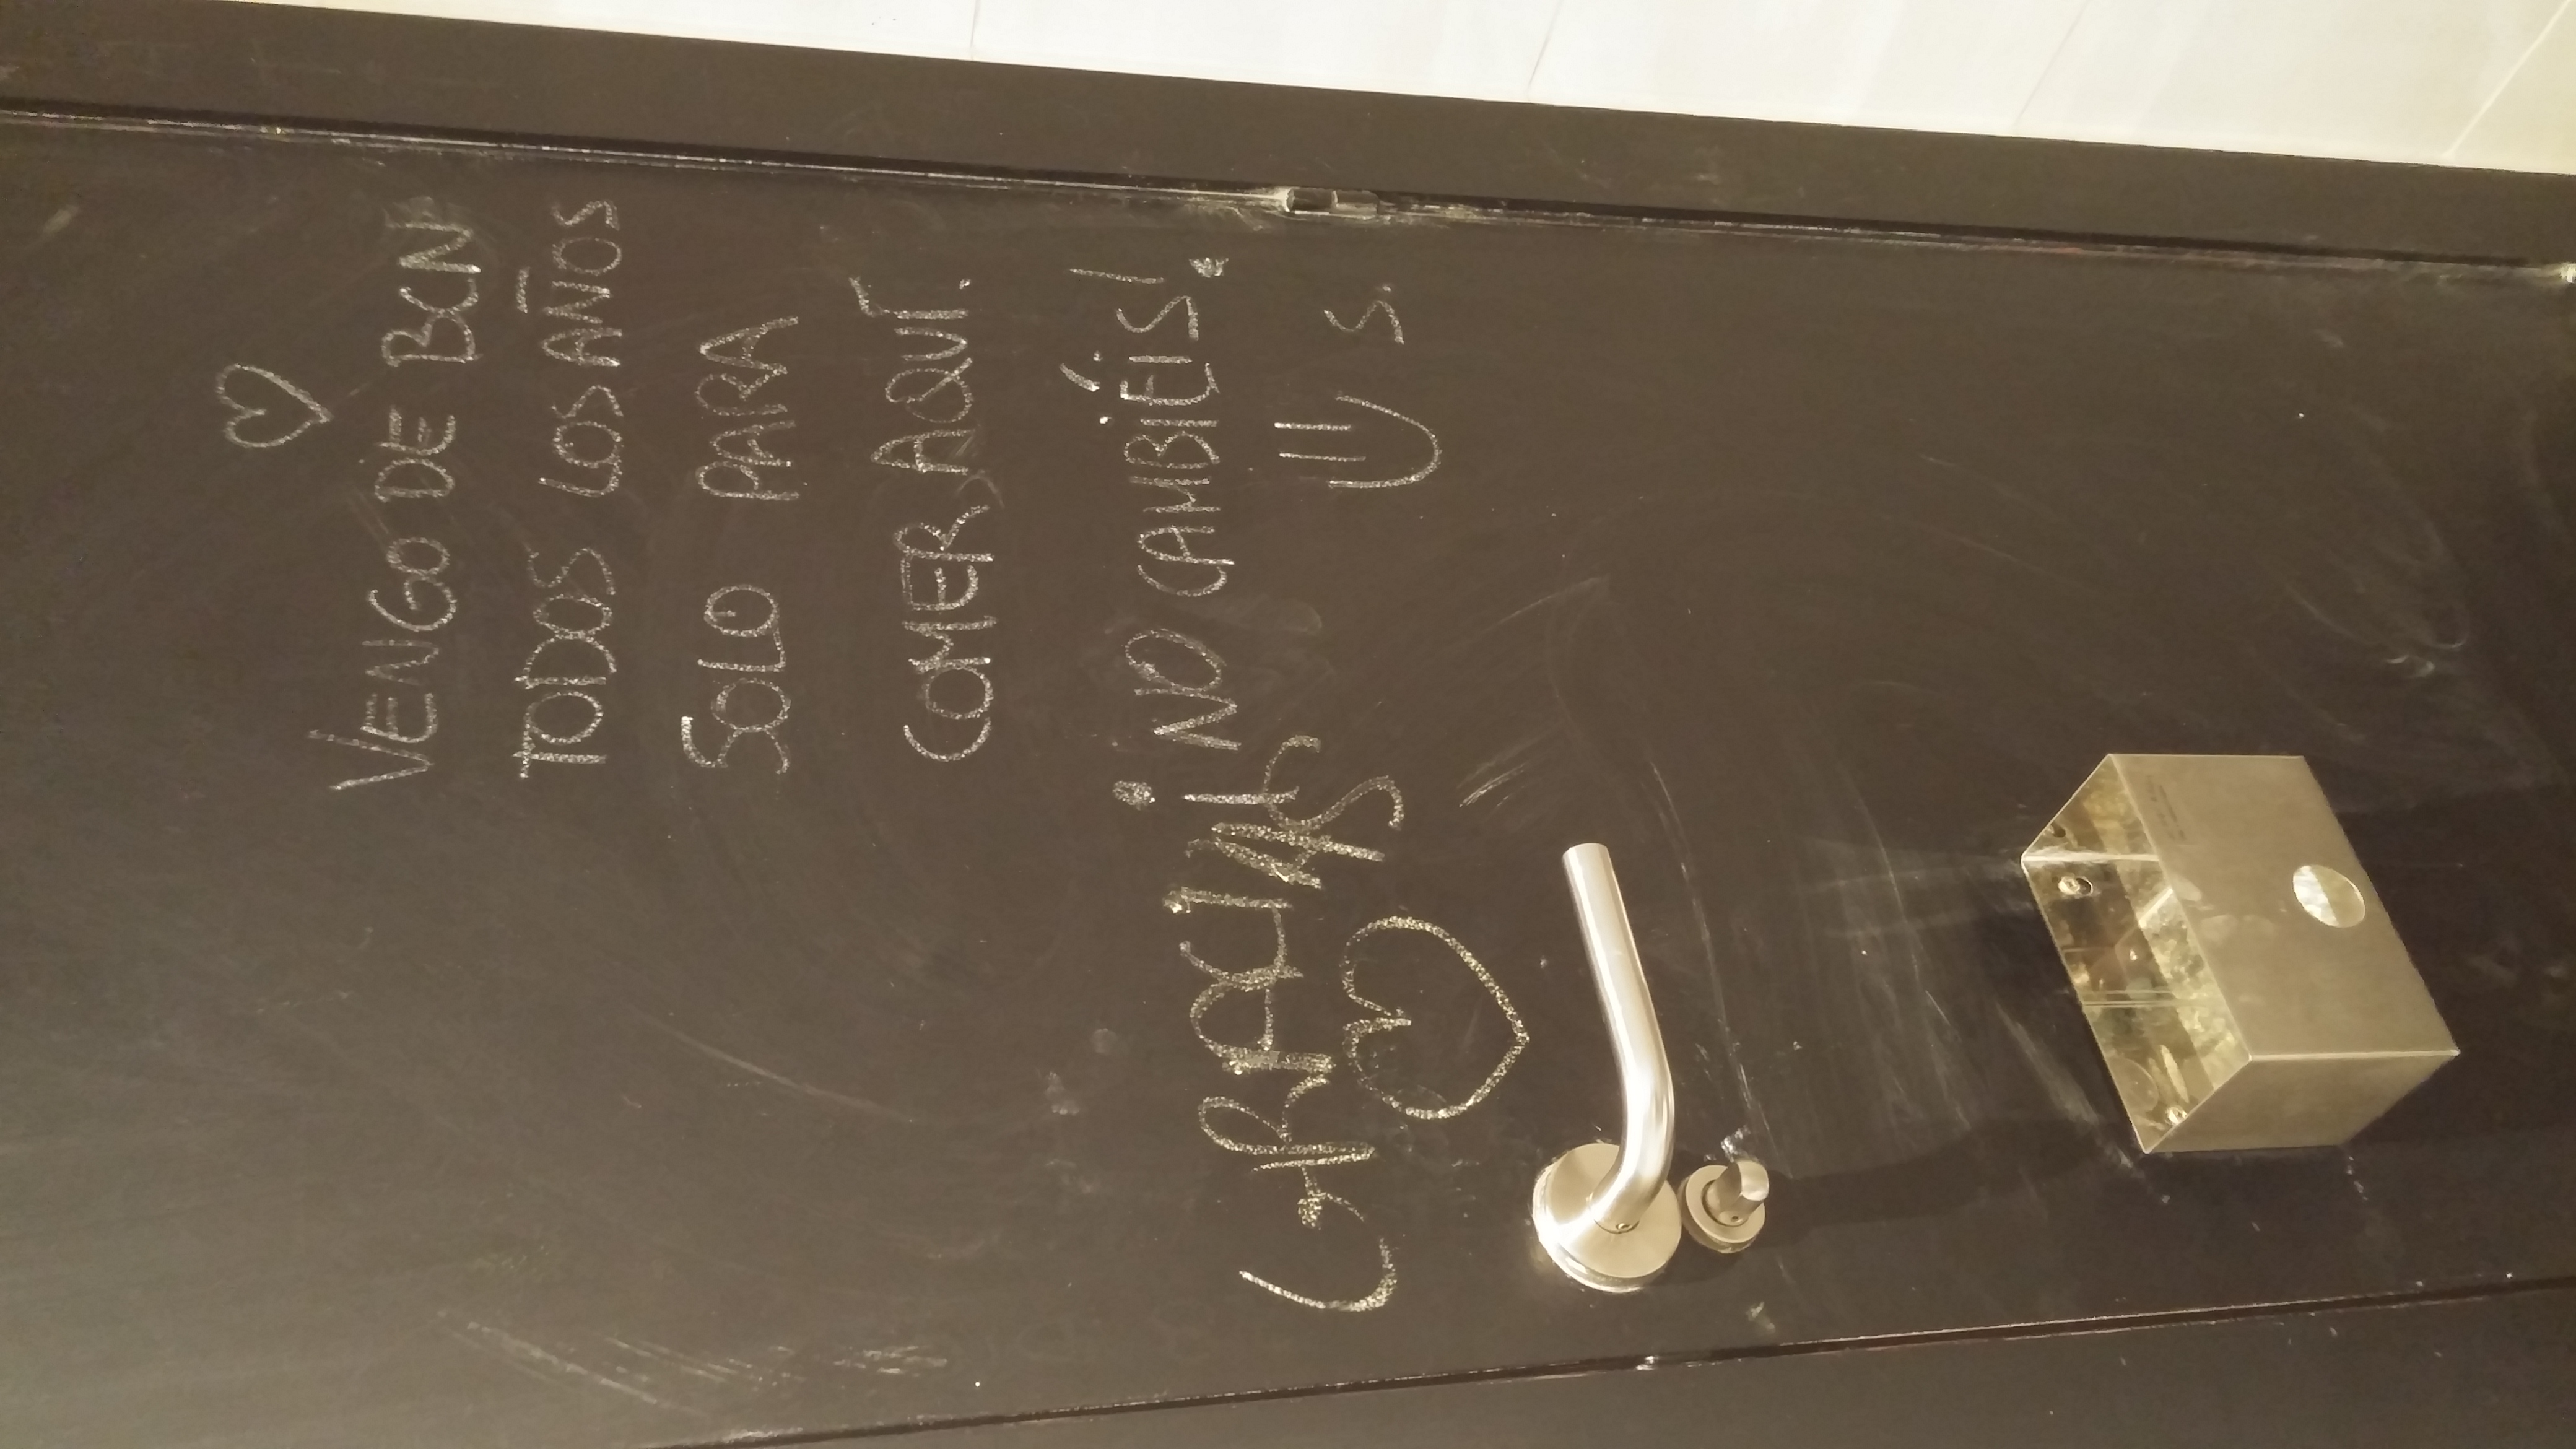 VENGO DE BCN
TODOS LOS AÑOS
SOLO PARA
COMER AQUÍ.
¡NO CAMBIÉIS!
S.
GRACIAS